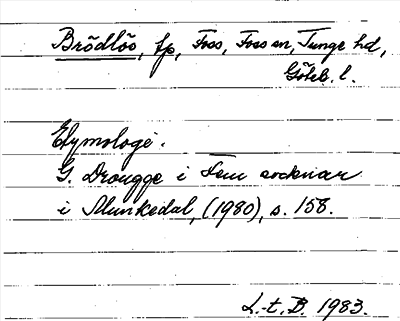 Brödlös, tp, Foss, Foss sn, Tunge hd,
Göteb. l.
Etymologi.
G. Drougge i Fem socknar
i Munkedal, (1980), s. 158.
L.-t. B. 1983.